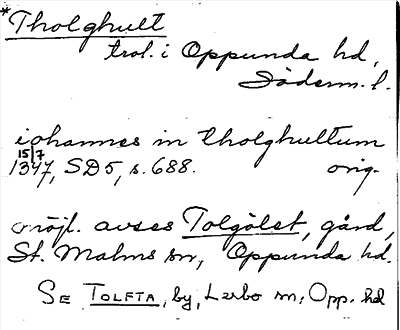 *Tholghult
trol. i Oppunda hd,
Söderm. l.
iohannes in tholghultum
15/7
1347, SD5, s. 688. orig.
möjl. avses Tolgölet, gård,
St. Malms sn, Oppunda hd.
SE TOLFTA, by, Lerbo sn, Opp. hd